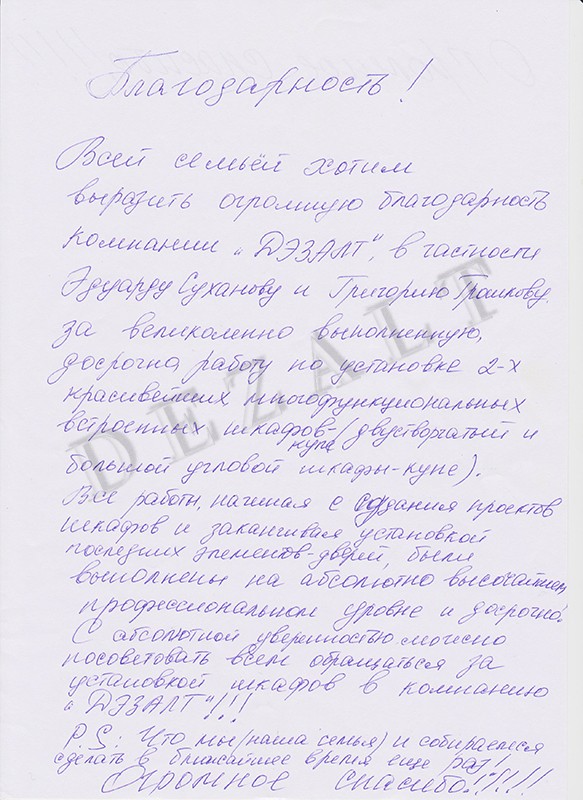 Благодарность!
Всей семьёй хотим
выразить огромную благодарность
компании "ДЭЗАЛТ", в частности
Эдуарду Суханову и Григорию
за великолепно выполненную,
досрочно работу по установке 2-х
красивейших многофункциональных
встроенных шкафов-купе (двустворчатый и
большой угловой шкафы-купе).
Все работы, начиная с создания проектов
шкафов и заканчивая установкой
последних элементов-дверей, были
выполнены на абсолютно высочайшем
профессиональном уровне и досрочно!
С абсолютной уверенностью можно
посоветовать всем обращаться за
установкой шкафов в компанию
"ДЭЗАЛТ"!!!
P.S: Что мы (наша семья) и собираемся
сделать в ближайшее время ещё раз!
Огромное спасибо!!!!!!
DEZALT